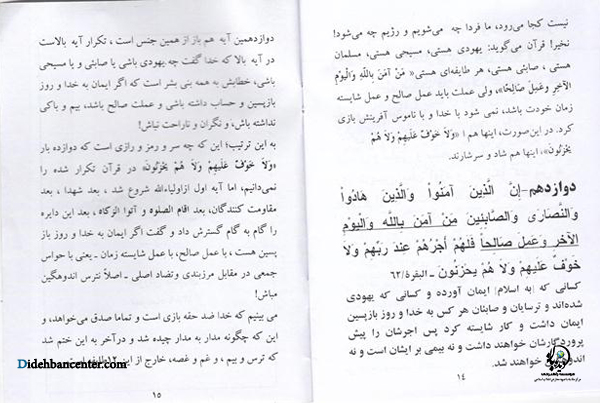 نیست کجا می‌رود، ما فردا چه می‌شویم و رژیم چه می‌شود!
نخیر! قرآن می‌گوید: یهودی هستی، مسیحی هستی، مسلمان
هستی، صابئی هستی، هر طایفه‌ای هستی «مَنْ آمَنَ بِاللَّهِ وَالْيَوْمِ
الآخِرِ وَعَمِلَ صَالِحًا»، ولی عملت باید عمل صالح و عمل شایسته
زمان خودت باشد، نمی شود با خدا و با ناموس آفرینش بازی
کرد. در این‌صورت، اینها هم «وَلَا خَوْفٌ عَلَيْهِمْ وَلَا هُمْ
يَحْزَنُونَ»، اینها هم شاد و سرشارند.
دوازدهم-إِنَّ الَّذِينَ آمَنُواْ وَالَّذِينَ هَادُواْ
وَالنَّصَارَى وَالصَّابِئِينَ مَنْ آمَنَ بِاللَّهِ وَالْيَوْمِ
الآخِرِ وَعَمِلَ صَالِحاً فَلَهُمْ أَجْرُهُمْ عِندَ رَبِّهِمْ وَلاَ
خَوْفٌ عَلَيْهِمْ وَلاَ هُمْ يَحْزَنُونَ - البقرة/۶۲
کسانی که [به اسلام] ایمان آورده و کسانی که یهودی
شده‌اند و ترسایان و صابئان هر کس به خدا و روز بازپسین
ایمان داشت و کار شایسته کرد پس اجرشان را پیش
پروردگارشان خواهند داشت و نه بیمی بر ایشان است و نه
اندوهگین خواهند شد.
۱۴
دوازدهمین آیه هم باز از همین جنس است، تکرار آیه بالاست
در آیه بالا که خدا گفت چه یهودی باشی یا صابئی و یا مسیحی
باشی، خطابش به همه بنی بشر است که اگر ایمان به خدا و روز
بازپسین و حساب داشته باشی و عملت صالح باشد، بیم و باکی
نداشته باش، و نگران و ناراحت نباش!
به این ترتیب؛ این که چه سر و رمز و رازی است که دوازده بار
«وَلَا خَوْفٌ عَلَيْهِمْ وَلَا هُمْ يَحْزَنُونَ» در قرآن تکرار شده را
نمی‌دانیم، اما آیه اول ازاولیاءالله شروع شد، بعد شهدا، بعد
مقاومت کنندگان، بعد اقام الصلوه و آتوا الزکاه، بعد این دایره
را گام به گام گسترش داد و گفت اگر ایمان به خدا و روز باز
پسین هست، با عمل صالح، با عمل شایسته زمان ـ یعنی با حواس
جمعی در مقابل مرزبندی وتضاد اصلی ـ اصلاً نترس اندوهگین
مباش!
می بینیم که خدا ضد حقه بازی است و تماما صدق می‌خواهد، و
این که چگونه مدار به مدار چیده شد، ودرآخر به این ختم شد
که ترس و بیم، و غم و غصه، خارج از این
۱۵
Didehbancenter.com